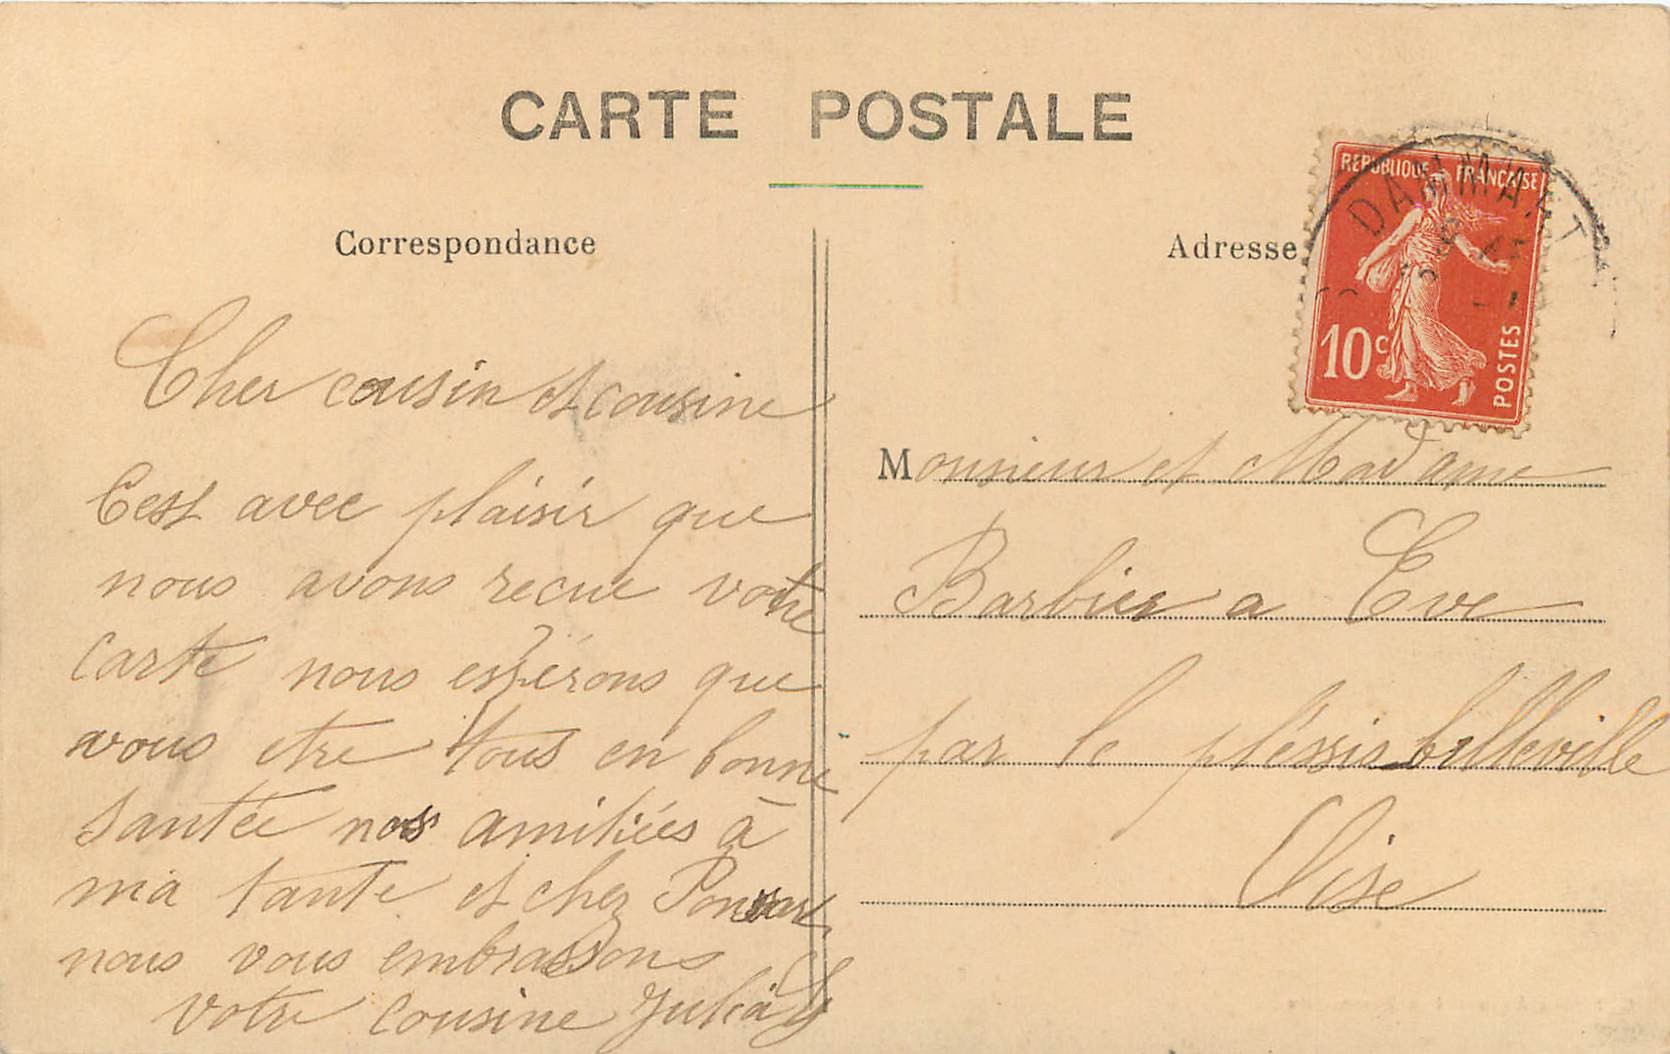 CARTE POSTALE
Correspondance
Cher cousin et cousine
C'est avec plaisir que
nous avons recue votre
carte nous espérons que
vous etre tous en bonne
santée nos amitiées à
ma tante et chez
nous vous embrassons
votre cousine Julia
Adresse
REPUBLIQUE FRANÇAISE
10c POSTES
DAMMART
Monsieur et Madame
Barbier a Eve
par le pléssis belleville
Oise